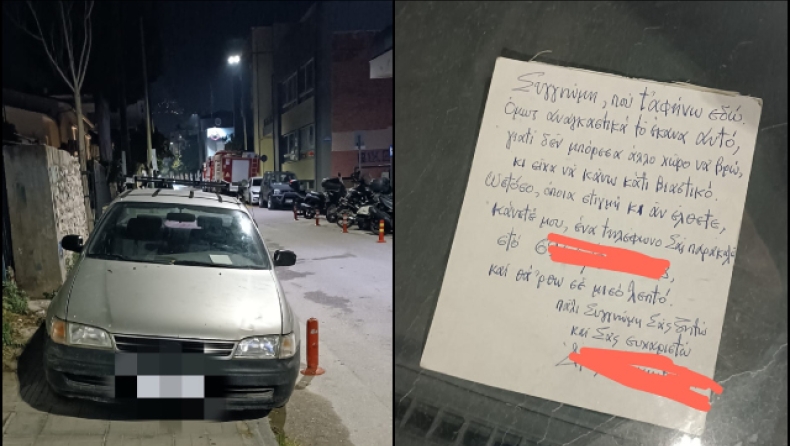 Συγγνώμη, πού τ'αφήνω εδώ.
Όμως αναγκαστικά το έκανα αυτό,
γιατί δέν μπόρεσα άλλο χώρο νά βρώ,
κι είχα νά κάνω κάτι βιαστικό.
Ωστόσο, όποια στιγμή κι αν έλθετε,
κάντέ μου, ένα τηλέφωνο Σάς παρακαλώ
στό
καί θά'ρθω σέ μισό λεπτό.
πάλι Συγγνώμη Σάς ζητώ
καί Σάς ευχαριστώ